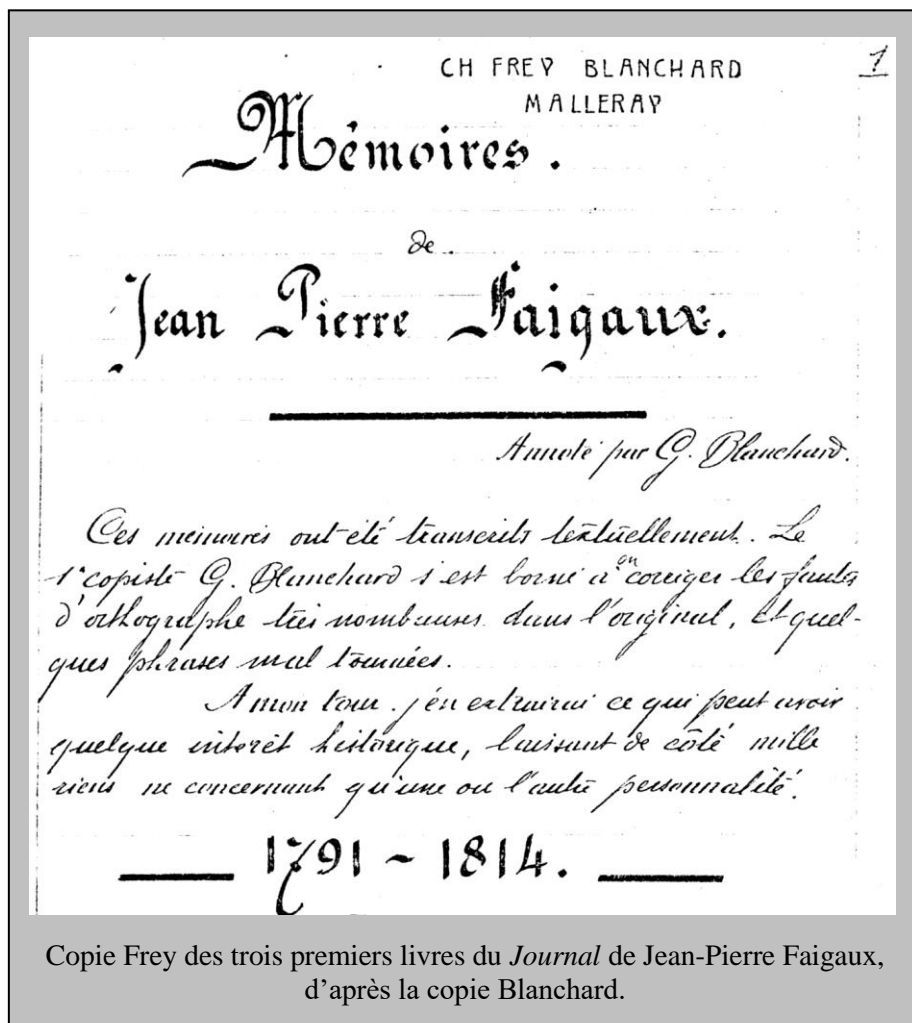 CH FREY BLANCHARD
1
MALLERAY
Mémoires.
de
Jean Pierre Faigaux.
Annoté par G. Blanchard.
Ces mémoires ont été transcrits textuellement. Le
1er copiste G. Blanchard s'est borné à en corriger les fautes
d'orthographe très nombreuses dans l'original, et quel-
ques phrases mal tournées.
A mon tour j'en extrairai ce qui peut avoir
quelque intérêt historique, laissant de côté mille
riens ne concernant qu'une ou l'autre personnalité.
1791 - 1814.
Copie Frey des trois premiers livres du Journal de Jean-Pierre Faigaux,
d'après la copie Blanchard.